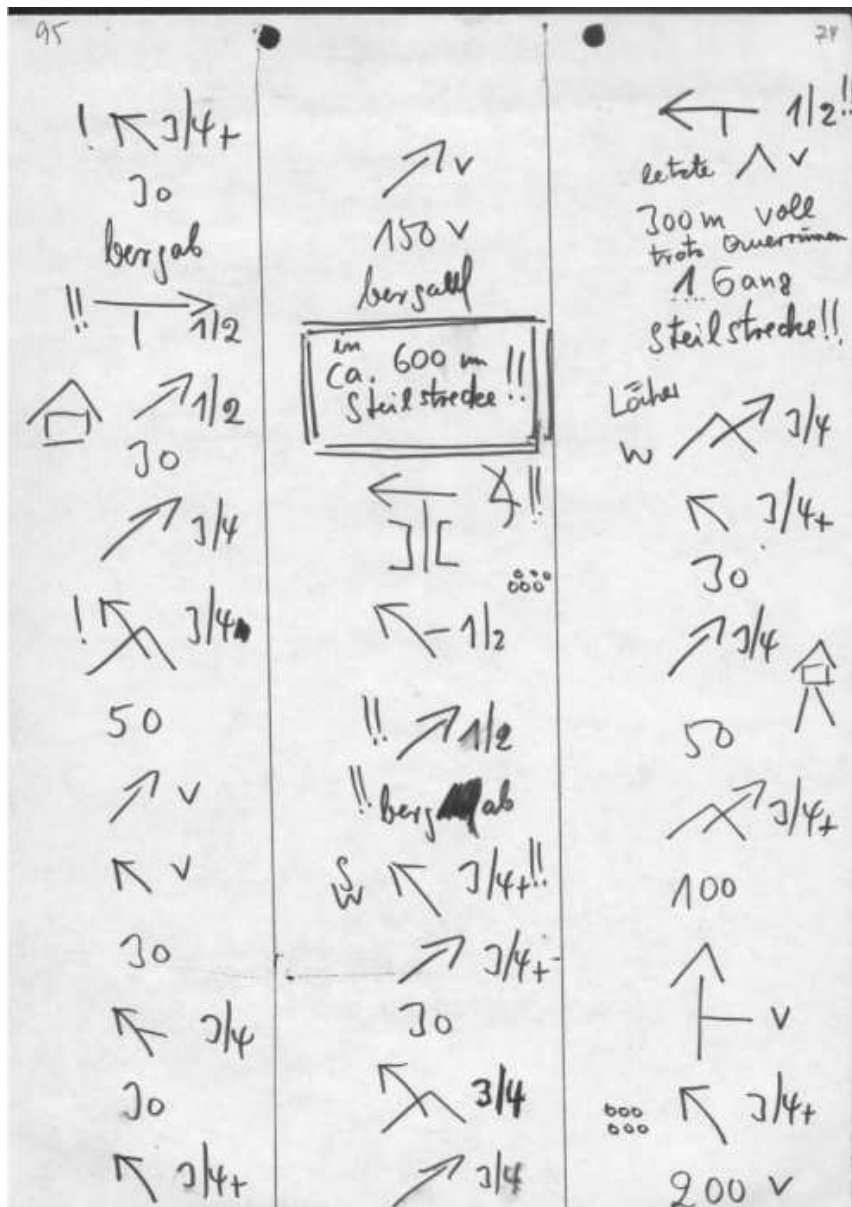 95
! 3/4+
30
bergab
!! 1/2
1/2
30
3/4
! 3/4
50
v
v
30
3/4
30
3/4+
v
150 v
bergab
in
ca. 600 m
Steilstrecke !!
!!
1/2
!! 1/2
!! bergab
S
W 3/4+!!
3/4+
30
3/4
3/4
24
1/2!!
letzte v
300 m voll
trotz Querrinnen
1 Gang
Steilstrecke!!
Löcher
W 3/4
3/4+
30
3/4
50
3/4+
100
v
3/4+
200 v